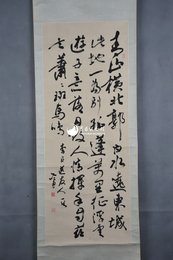 青山横北郭白水遶東城
此地一為別孤蓬萬里征浮雲
遊子意落日故人情揮手自茲
去蕭蕭班馬鳴
李白送友人